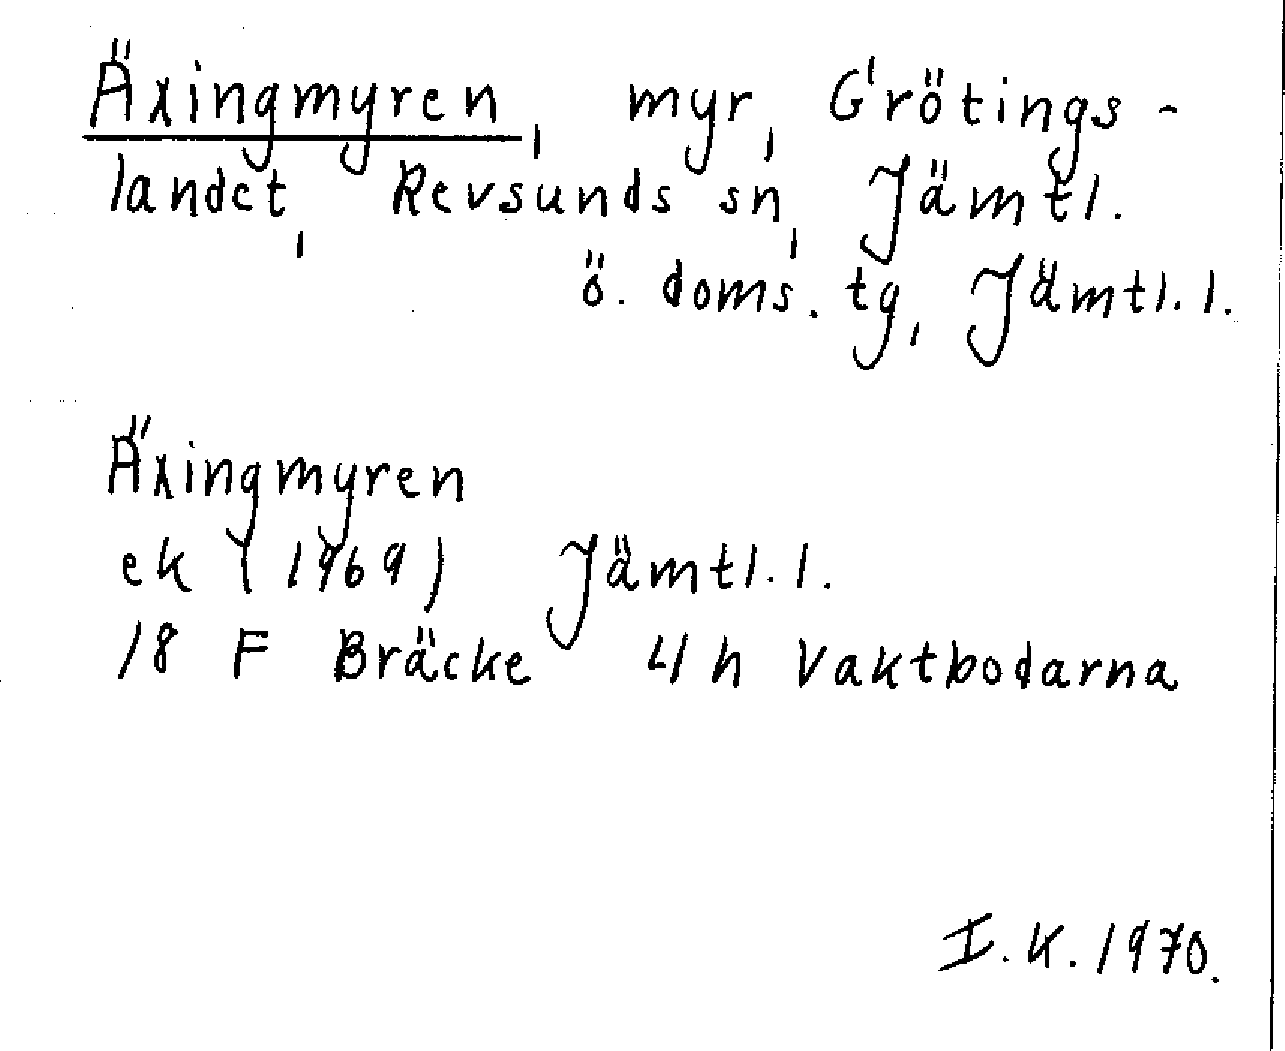 Äxingmyren, myr, Grötings-
landet, Revsunds sn, Jämtl.
ö. doms. tg, Jämtl. l.
Äxingmyren
ek (1969) Jämtl. l.
18 F Bräcke 4 h Vaktbodarna
I.K. 1970.